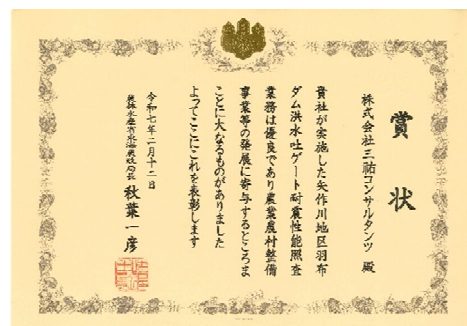 賞状
株式会社三祐コンサルタンツ 殿
貴社が実施した矢作川地区羽布
ダム洪水吐ゲート耐震性能照査
業務は優良であり農業農村整備
事業等の発展に寄与するところま
ことに大なるものがありました
よってここにこれを表彰します
令和七年二月十二日
農林水産省東海農政局長 秋葉一彦